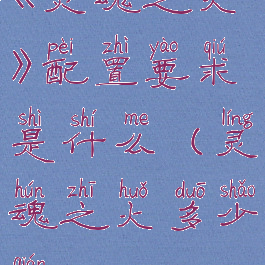 《灵魂之火
pèi zhì yào qiú
》配置要求
shì shí me líng
是什么（灵
hún zhī huǒ duō shǎo
魂之火多少